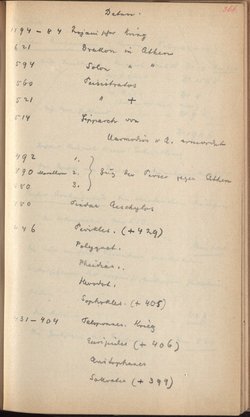 Daten.
366
1194-84 Trojanischer Krieg
621 Drakon in Athen
594 Solon " "
560 Peisistratos
521 " +
514 Hipparch von
Harmodios u A. ermordet
492 1.
490 Marathon 2. } Zug der Perser gegen Athen
480 3.
500 Aeschylos
446 Perikles. (+429)
Polygnot.
Pheidias.
Herodot.
Sophokles. (+405)
431-404 Peloponnes. Krieg
Euripides (+406)
Aristophanes
Sokrates (+399)